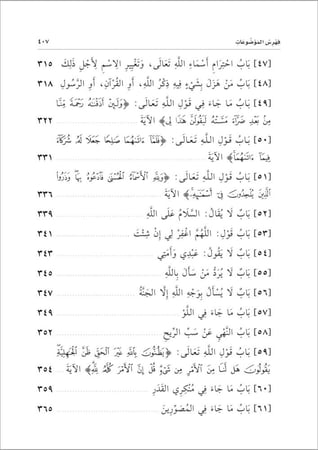 فهرس الموضوعات ٤٠٧
[٤٧] بَابُ احْتِرَامِ أَسْمَاءِ اللَّهِ تَعَالَى، وَتَغْيِيرِ الِاسْمِ لِأَجْلِ ذَلِكَ ٣١٥
[٤٨] بَابُ مَنْ هَزَلَ بِشَيْءٍ فِيهِ ذِكْرُ اللَّهِ، أَوِ الْقُرْآنِ، أَوِ الرَّسُولِ ٣١٨
[٤٩] بَابُ مَا جَاءَ فِي قَوْلِ اللَّهِ تَعَالَى: ﴿وَلَئِنْ أَذَقْنَاهُ رَحْمَةً مِّنَّا
مِنْ بَعْدِ ضَرَّاءَ مَسَّتْهُ لَيَقُولَنَّ هَذَا لِي﴾ الآيَةَ ٣٢٢
[٥٠] بَابُ قَوْلِ اللَّهِ تَعَالَى: ﴿فَلَمَّا ءَاتَاهُمَا صَالِحًا جَعَلَا لَهُ شُرَكَاءَ
فِيمَا ءَاتَاهُمَا﴾ الآيَةَ ٣٣١
[٥١] بَابُ قَوْلِ اللَّهِ تَعَالَى: ﴿وَلِلَّهِ الْأَسْمَاءُ الْحُسْنَى فَادْعُوهُ بِهَا وَذَرُوا
الَّذِينَ يُلْحِدُونَ فِي أَسْمَائِهِ﴾ الآيَةَ ٣٣٦
[٥٢] بَابُ لَا يُقَالُ: السَّلَامُ عَلَى اللَّهِ ٣٣٩
[٥٣] بَابُ قَوْلِ: اللَّهُمَّ اغْفِرْ لِي إِنْ شِئْتَ ٣٤١
[٥٤] بَابُ لَا يَقُولُ: عَبْدِي وَأَمَتِي ٣٤٣
[٥٥] بَابُ لَا يُرَدُّ مَنْ سَأَلَ بِاللَّهِ ٣٤٥
[٥٦] بَابُ لَا يُسْأَلُ بِوَجْهِ اللَّهِ إِلَّا الْجَنَّةُ ٣٤٧
[٥٧] بَابُ مَا جَاءَ فِي اللَّوْ ٣٤٩
[٥٨] بَابُ النَّهْيِ عَنْ سَبِّ الرِّيحِ ٣٥٢
[٥٩] بَابُ قَوْلِ اللَّهِ تَعَالَى: ﴿يَظُنُّونَ بِاللَّهِ غَيْرَ الْحَقِّ ظَنَّ الْجَاهِلِيَّةِ
يَقُولُونَ هَل لَّنَا مِنَ الْأَمْرِ مِن شَيْءٍ قُلْ إِنَّ الْأَمْرَ كُلَّهُ لِلَّهِ﴾ الآيَةَ ٣٥٤
[٦٠] بَابُ مَا جَاءَ فِي مُنْكِرِي الْقَدَرِ ٣٥٩
[٦١] بَابُ مَا جَاءَ فِي الْمُصَوِّرِينَ ٣٦٥